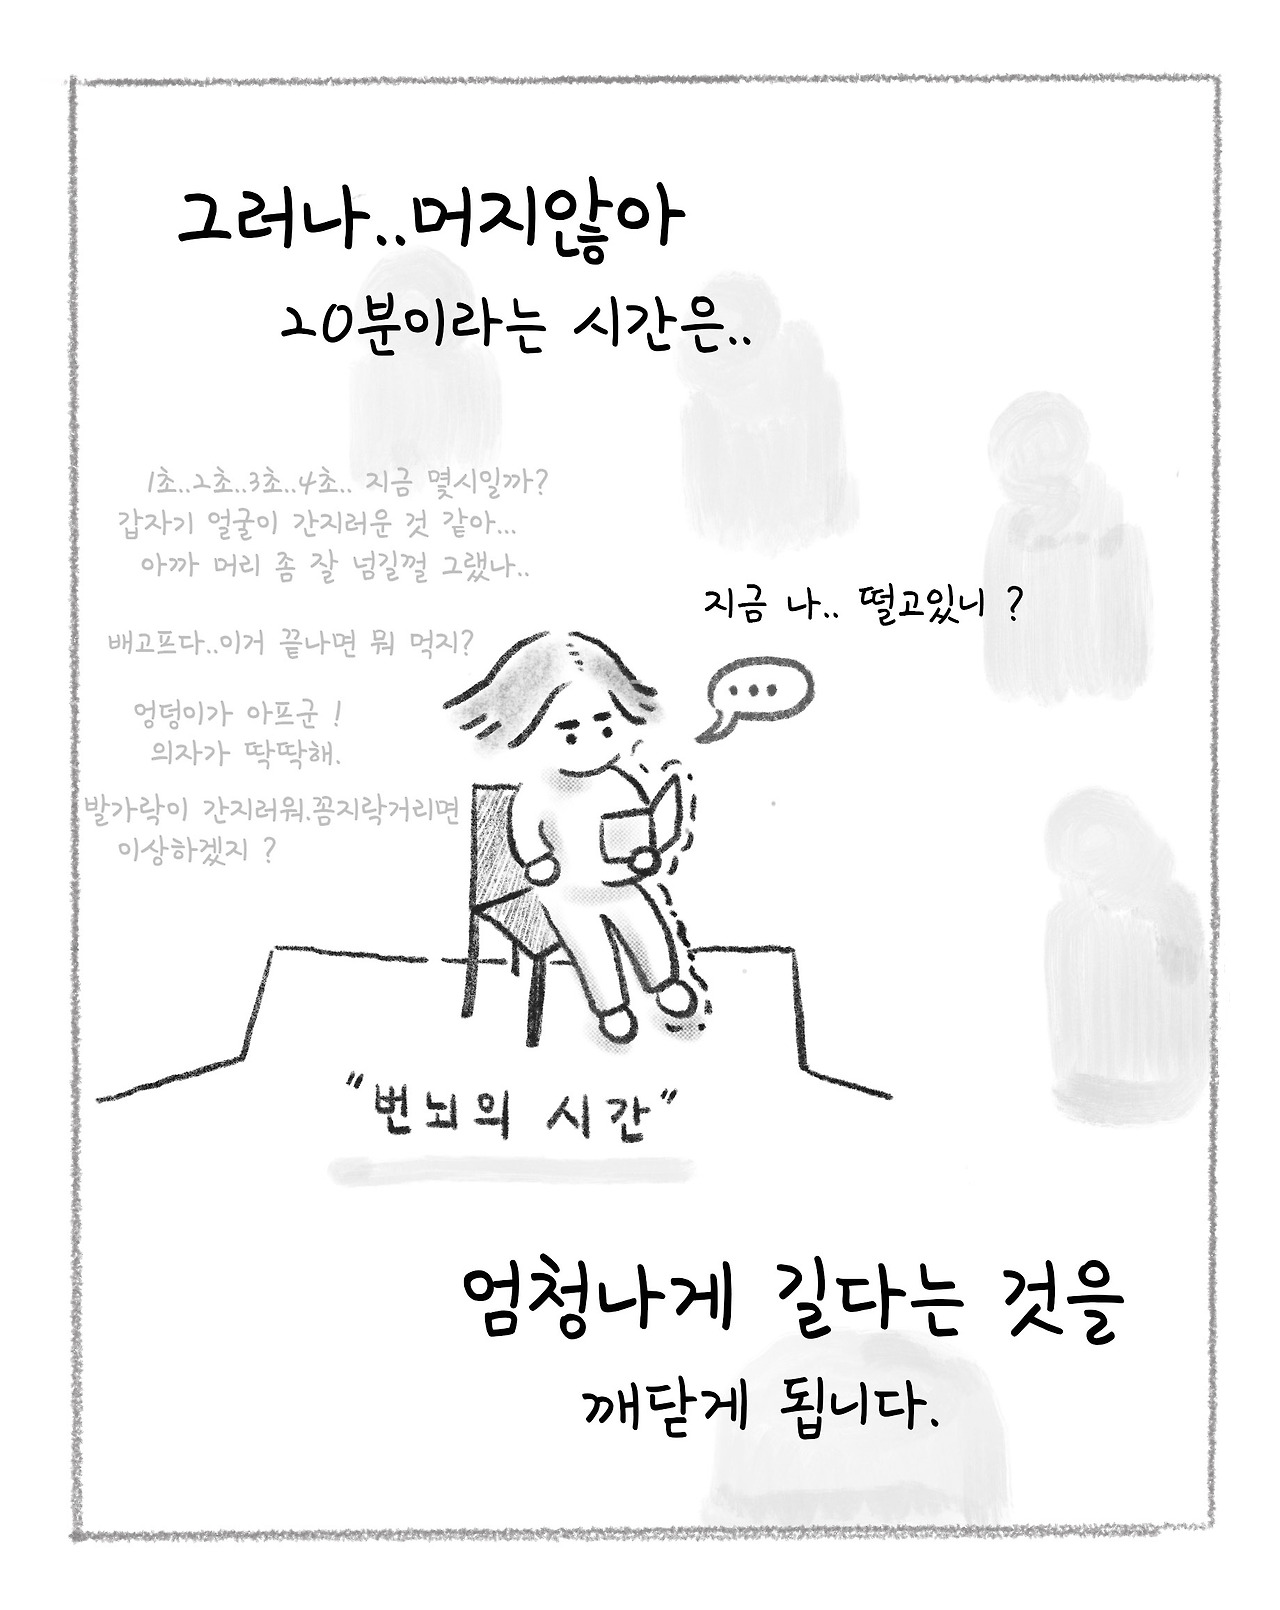 그러나..머지않아
20분이라는 시간은..
1초..2초..3초..4초.. 지금 몇시일까?
갑자기 얼굴이 간지러운 것 같아...
아까 머리 좀 잘 넘길껄 그랬나..
지금 나.. 떨고있니 ?
배고프다..이거 끝나면 뭐 먹지?
...
엉덩이가 아프군 !
의자가 딱딱해.
발가락이 간지러워.꼼지락거리면
이상하겠지 ?
"번뇌의 시간"
엄청나게 길다는 것을
깨닫게 됩니다.